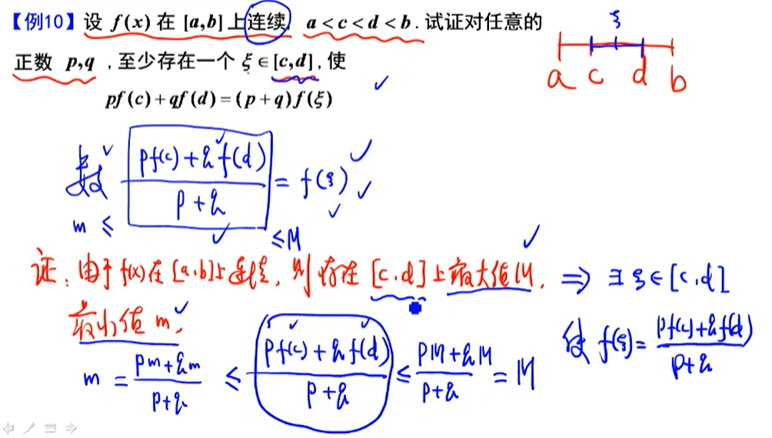 【例10】设 f(x) 在 [a,b] 上连续, a<c<d<b. 试证对任意的
正数 p,q ,至少存在一个 ξ∈[c,d],使
pf(c)+qf(d)=(p+q)f(ξ)
ξ
a c d b
数 (pf(c)+qf(d))/(p+q) = f(ξ)
m ≤ ≤M
证:由于f(x)在[a,b]上连续,则存在[c,d]上最大值M, ⇒ ∃ξ∈[c,d]
最小值m, 使 f(ξ)=(pf(c)+qf(d))/(p+q)
m = (pm+qm)/(p+q) ≤ (pf(c)+qf(d))/(p+q) ≤ (pM+qM)/(p+q) = M